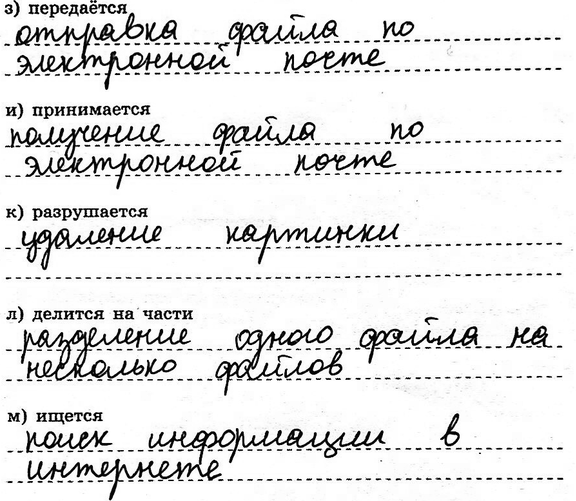 з) передаётся
отправка файла по
электронной почте
и) принимается
получение файла по
электронной почте
к) разрушается
удаление картинки
л) делится на части
разделение одного файла на
несколько файлов
м) ищется
поиск информации в
интернете